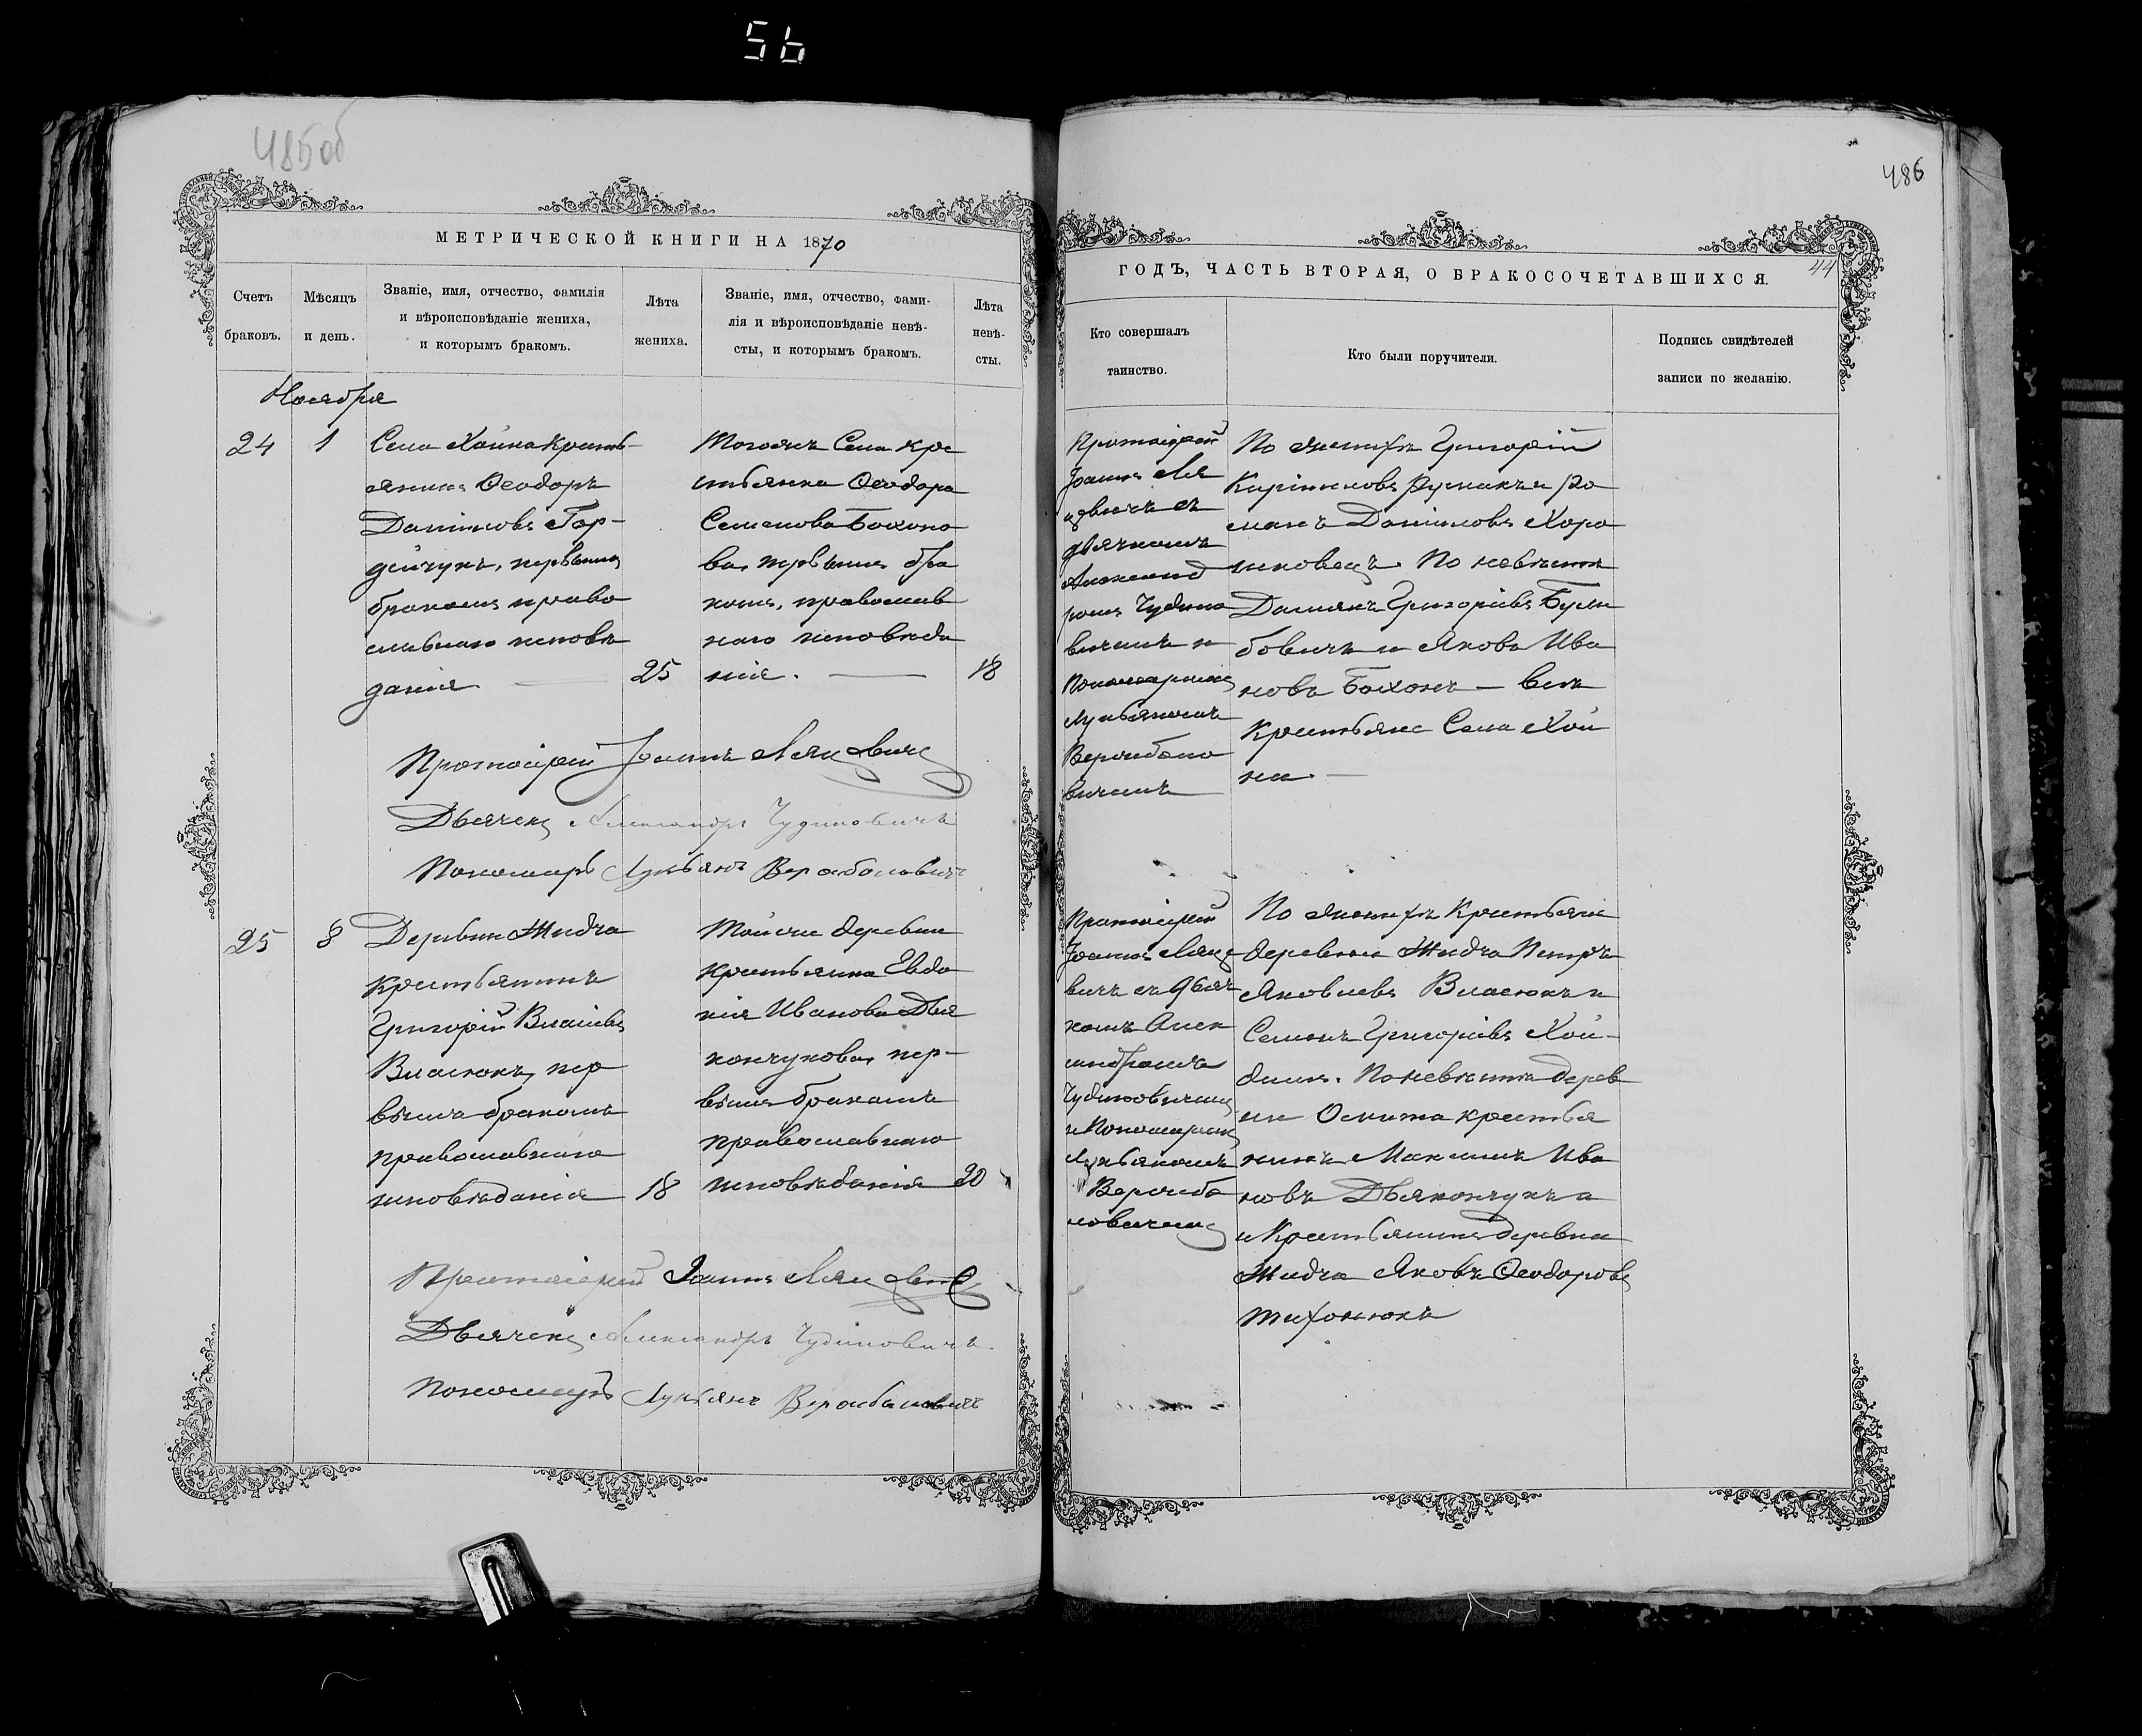 56
485об
МЕТРИЧЕСКОЙ КНИГИ НА 1870
Счетъ
браковъ.
Мѣсяцъ
и день.
Званіе, имя, отчество, фамилія
и вѣроисповѣданіе жениха,
и которымъ бракомъ.
Лѣта
жениха.
Званіе, имя, отчество, фами-
лія и вѣроисповѣданіе невѣ-
сты, и которымъ бракомъ.
Лѣта
невѣ-
сты.
Ноября
24
1
Села Хойна крестъ-
янинъ Ѳеодоръ
Даніиловъ Гор-
дейчукъ, первымъ
бракомъ право
славнаго исповѣ
данія.
25
Тогожъ Села кре
стьянка Ѳеодора
Семенова Бохоно
ва, первымъ бра
комъ, православ
наго исповѣда
нія.
18
Протоіерей Іоаннъ Ляцевичъ
Дьячекъ Александръ Чудиновичъ
Пономарь Лукьянъ Вероиболовичъ
25
8
Деревни Жидча
крестьянинъ
Григорій Власіевъ
Власюкъ, пер
вымъ бракомъ
православнаго
исповѣданія
18
Той же деревни
крестьянка Евдо
кія Иванова Дья
кончукова, пер-
вымъ бракомъ
православнаго
исповѣданія
20
Протоіерей Іоаннъ Ляцевичъ
Дьячекъ Александръ Чудиновичъ.
Пономарь Лукьянъ
486
44
ГОДЪ, ЧАСТЬ ВТОРАЯ, О БРАКОСОЧЕТАВШИХСЯ.
Кто совершалъ
таинство.
Кто были поручители.
Подпись свидѣтелей
записи по желанію.
Протоіерей
Іоаннъ Ля
цевичъ съ
дьячкомъ
Александ
ромъ Чудино
вичемъ и
Пономаремъ
Лукьяномъ
вичемъ
По женихѣ Григорій
Кириловъ Русакъ и Ро
манъ Даниловъ Хоро
шковецъ. По невѣстѣ
Даміанъ Григоріевъ
бовичъ и Яковъ Ива
новъ Бохонъ — всѣ
Крестьяне Села Хой
на.
Протоіерей
Іоаннъ Ляце
вичъ съ дьяч
комъ Алек
сандромъ
Чудиновичемъ
и Пономаремъ
Лукьяномъ
По женихѣ Крестьяне
деревни Жидча Петръ
Яковлевъ Власюкъ и
Семенъ Григоріевъ Хой-
По невѣстѣ дерев
ни Осника крестья
нинъ Максимъ Ива
новъ Дьякончукъ
и Крестьянинъ деревни
Жидча Яковъ Ѳеодоровъ
Тихонюкъ